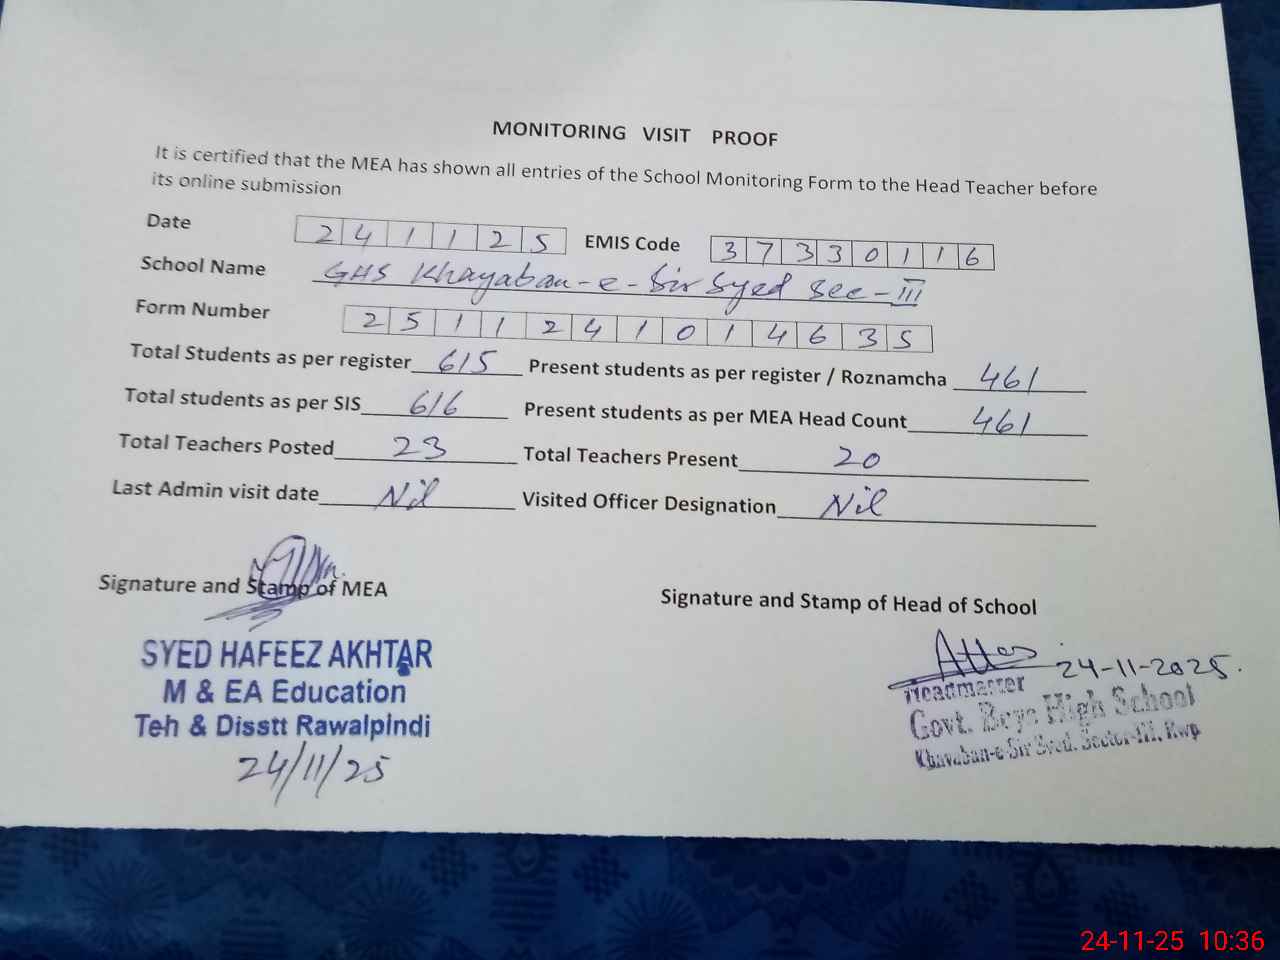 MONITORING VISIT PROOF
It is certified that the MEA has shown all entries of the School Monitoring Form to the Head Teacher before
its online submission
Date 241125 EMIS Code 37330116
School Name GHS Khayaban-e-Sir Syed Sec-III
Form Number 2511241014635
Total Students as per register 615 Present students as per register / Roznamcha 461
Total students as per SIS 616 Present students as per MEA Head Count 461
Total Teachers Posted 23 Total Teachers Present 20
Last Admin visit date Nil Visited Officer Designation Nil
Signature and Stamp of MEA Signature and Stamp of Head of School
SYED HAFEEZ AKHTAR
M & EA Education
Teh & Disstt Rawalpindi
24/11/25
24-11-2025.
Headmaster
Govt. Boys High School
Khayaban-e-Sir Syed. Sector-III, Rwp
24-11-25 10:36